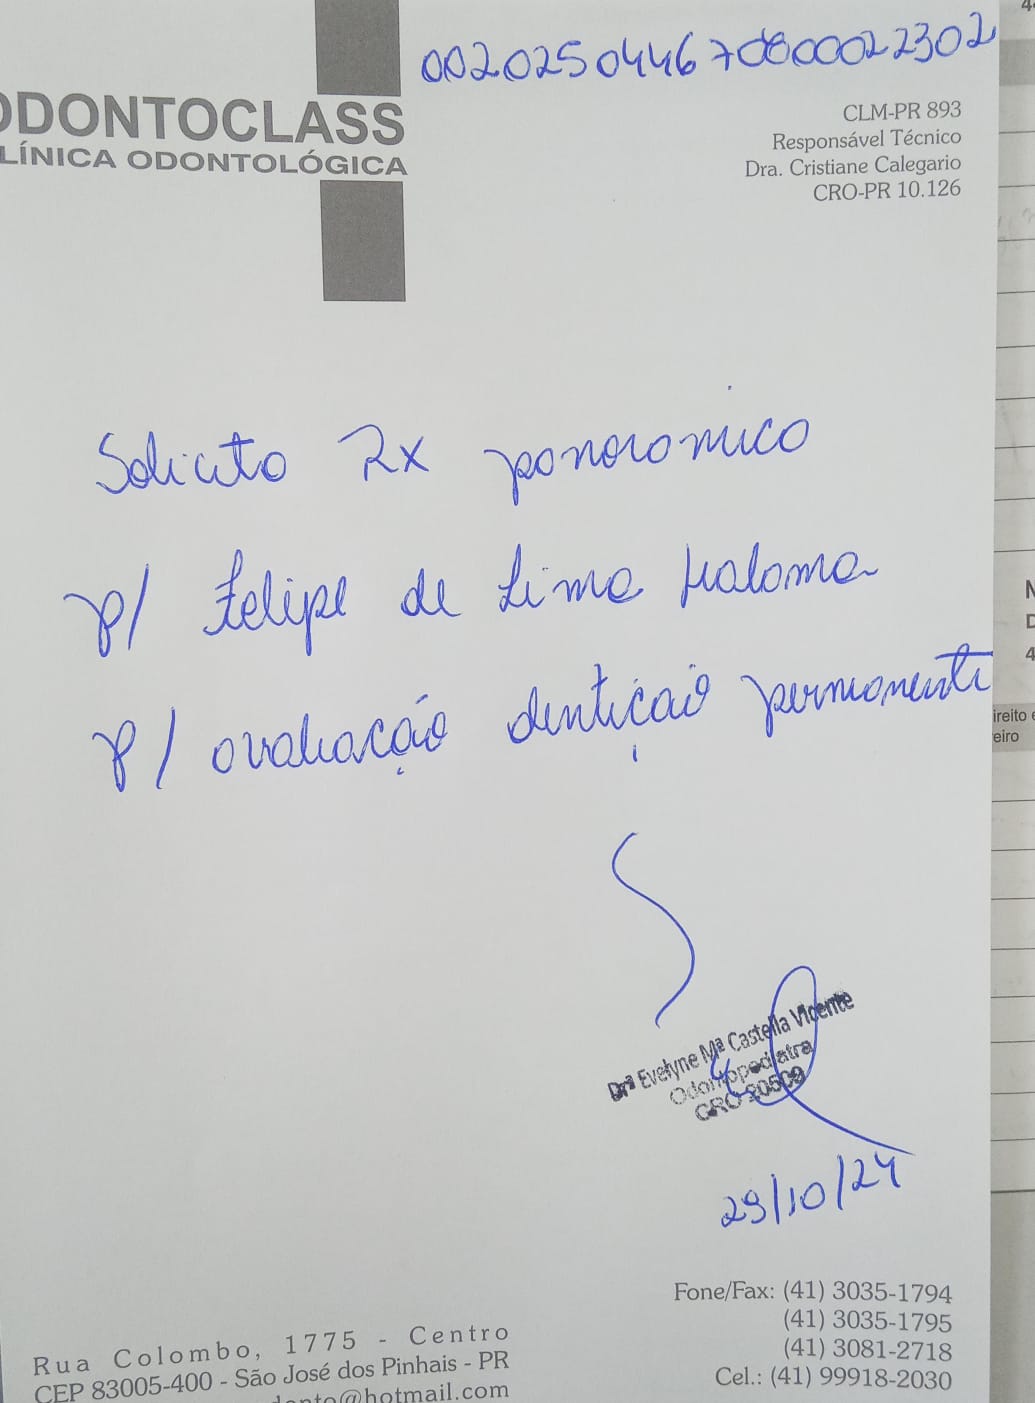 00202504467080022302
ODONTOCLASS
LÍNICA ODONTOLÓGICA
CLM-PR 893
Responsável Técnico
Dra. Cristiane Calegario
CRO-PR 10.126
Solicito Rx panoramico
p/ Felipe de Lima
p/ avaliação dentição permanente
Drª Evelyne Mª Castella Vicente
Odontopediatra
CRO 20509
29/10/24
Fone/Fax: (41) 3035-1794
(41) 3035-1795
(41) 3081-2718
Cel.: (41) 99918-2030
Rua Colombo, 1775 - Centro
CEP 83005-400 - São José dos Pinhais - PR
onto@hotmail.com
ireito
eiro